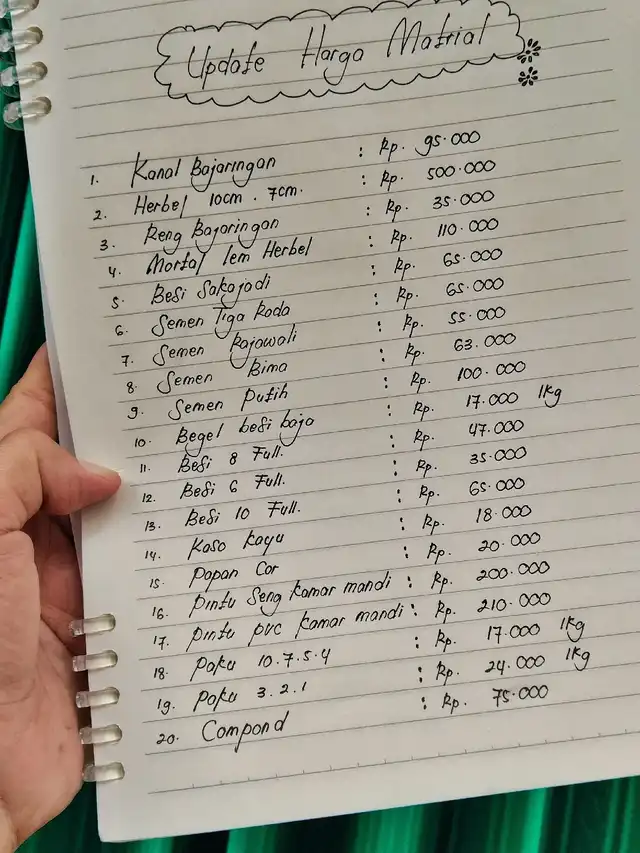 Update Harga Matrial
1. Kanal Bajaringan : Rp. 95.000
2. Herbel 10cm . 7cm. : Rp. 500.000
3. Reng Bajaringan : Rp. 35.000
4. Mortal lem Herbel : Rp. 110.000
5. Besi Sakajadi : Rp. 65.000
6. Semen Tiga Roda : Rp. 65.000
7. Semen Rajawali : Rp. 55.000
8. Semen Bima : Rp. 63.000
9. Semen Putih : Rp. 100.000
10. Begel besi baja : Rp. 17.000 1kg
11. Besi 8 Full. : Rp. 47.000
12. Besi 6 Full. : Rp. 35.000
13. Besi 10 Full. : Rp. 65.000
14. Kaso kayu : Rp. 18.000
15. Papan Cor : Rp. 20.000
16. Pintu Seng kamar mandi : Rp. 200.000
17. Pintu pvc kamar mandi : Rp. 210.000
18. Paku 10.7.5.4 : Rp. 17.000 1kg
19. Paku 3.2.1 : Rp. 24.000 1kg
20. Compond : Rp. 75.000